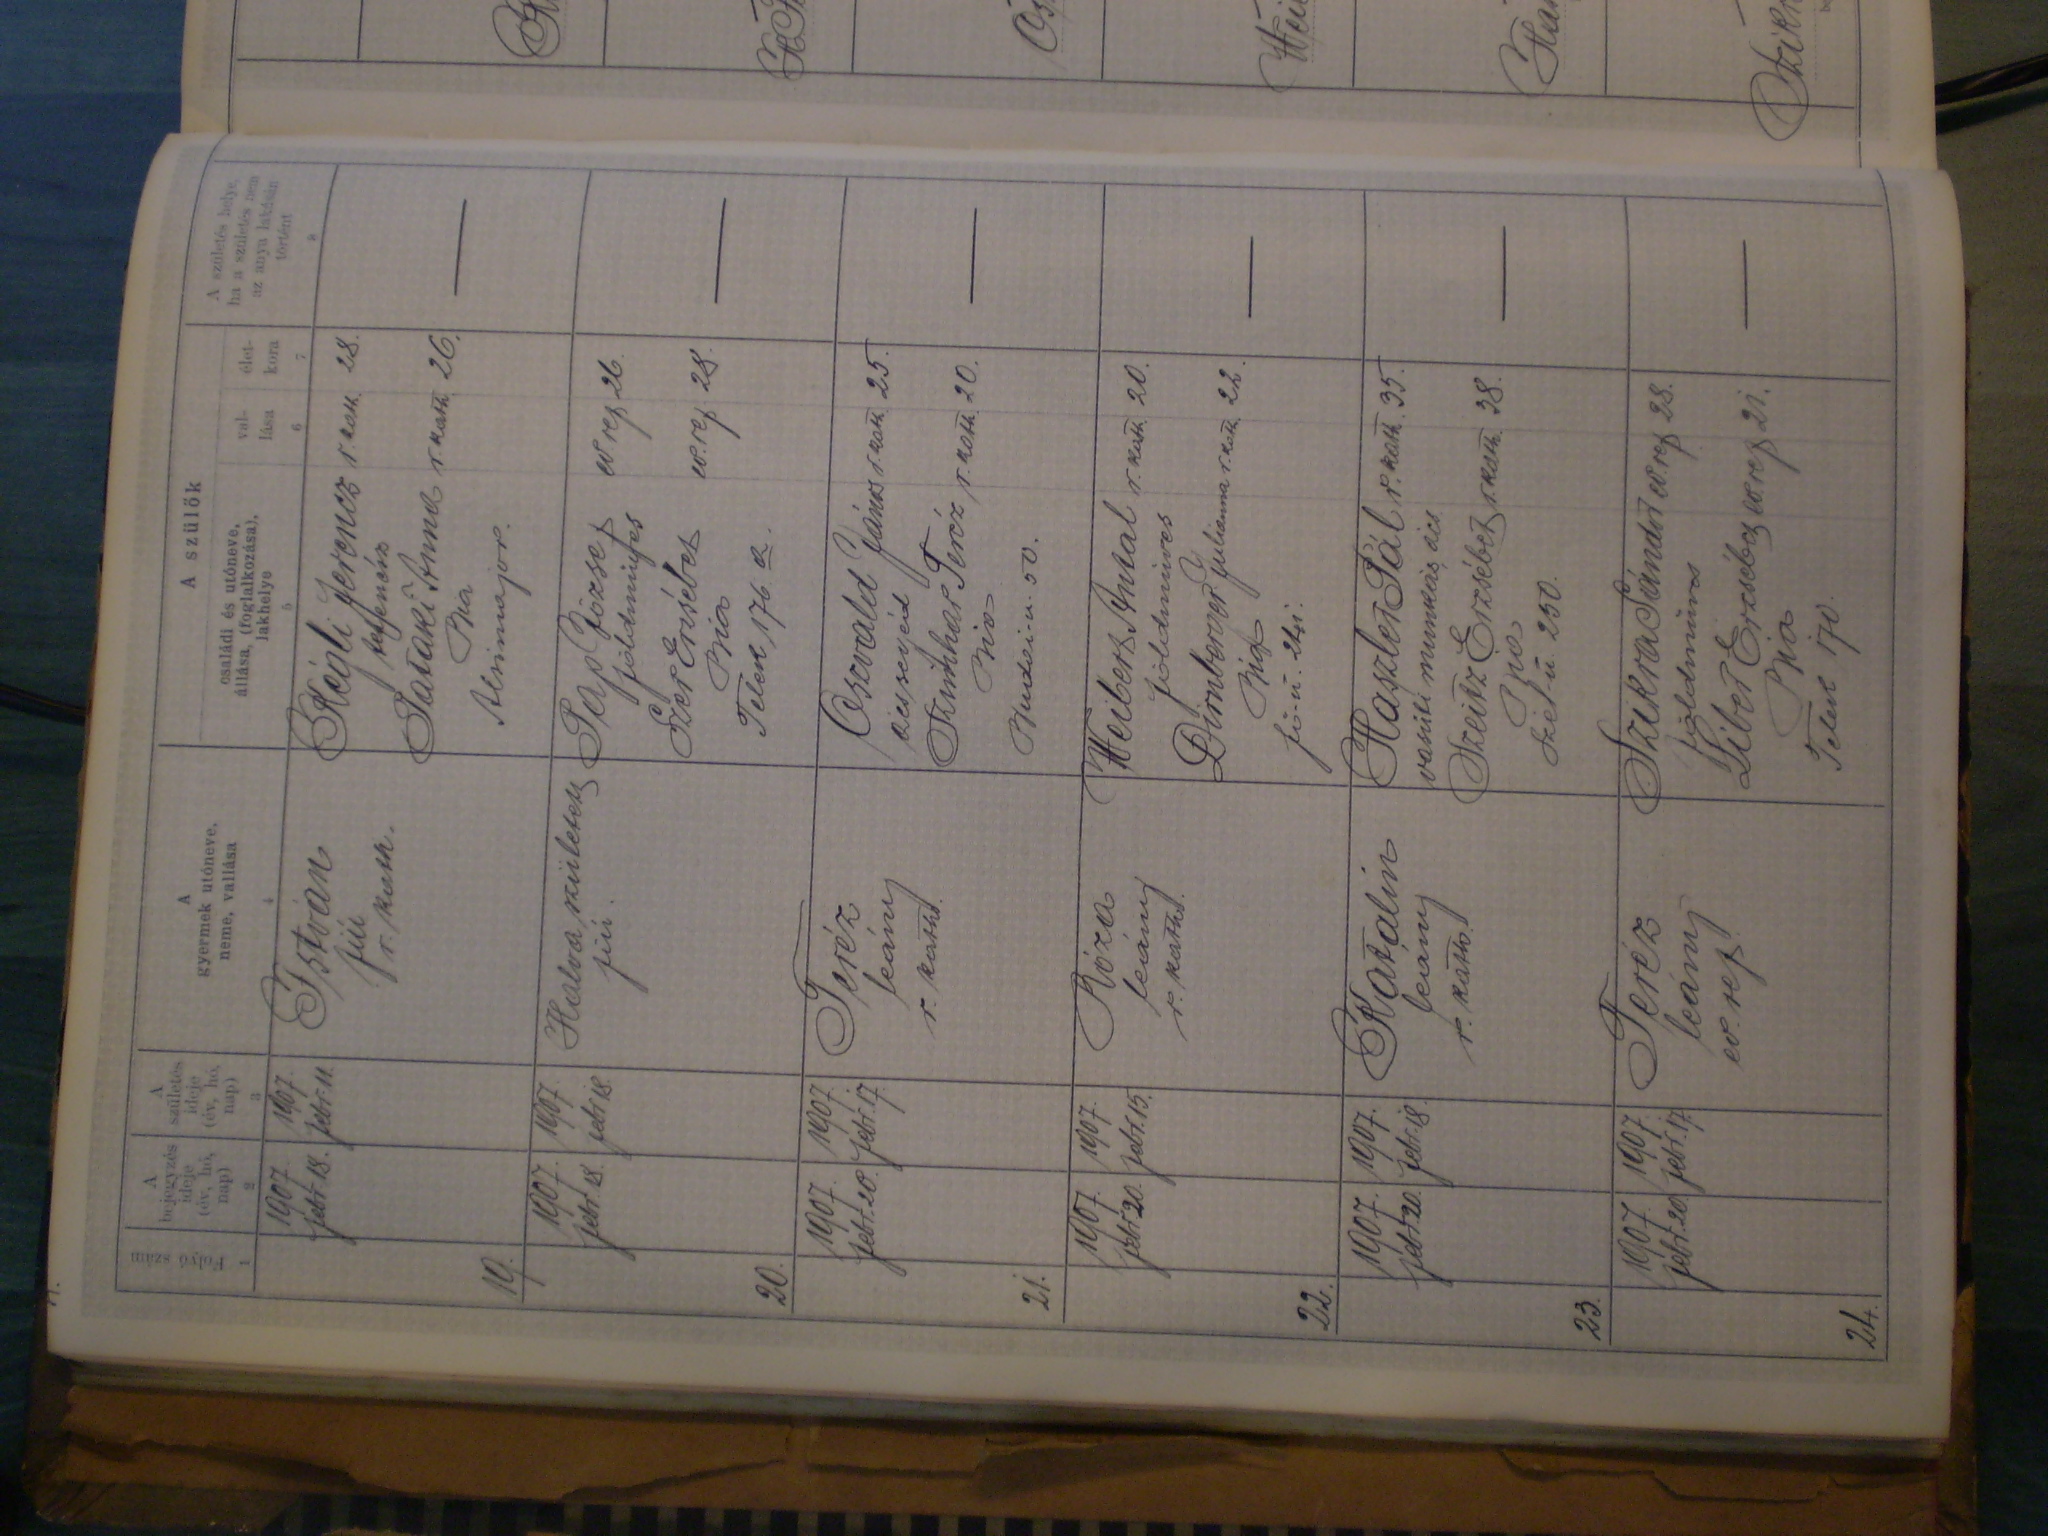 A szülők
Folyó szám
A bejegyzés ideje (év, hó, nap)
A születés ideje (év, hó, nap)
A gyermek utóneve, neme, vallása
családi és utóneve, állása, (foglalkozása), lakhelye
vallása
életkora
A születés helye, ha a születés nem az anya lakásán történt
1
2
3
4
5
6
7
8
19.
1907. febr. 18.
1907. febr. 11.
István
fiú
r. kath.
Régli Ferencz r. kath. 28.
Pataki Anna r. kath. 26.
Bia
Alsómajor.
20.
1907. febr. 18.
1907. febr. 18.
Halva született
fiú.
Pap József ev. ref. 26.
földmíves
Szer Erzsébet ev. ref. 28.
Bia
Telek 176. a.
21.
1907. febr. 20.
1907. febr. 17.
Teréz
leány
r. kath.
Oszvald János r. kath. 25.
ácssegéd
Teréz r. kath. 20.
Bia
Budai-u. 50.
22.
1907. febr. 20.
1907. febr. 15.
Róza
leány
r. kath.
Weibert Antal r. kath. 20.
földmíves
Dirnberger Julianna r. kath. 22.
Bia
fő-u. 241.
23.
1907. febr. 20.
1907. febr. 18.
Katalin
leány
r. kath.
Haszler Pál r. kath. 35.
vasúti munkás, ács
Szeitz Erzsébet r. kath. 38.
Bia
Szél-u. 250.
24.
1907. febr. 20.
1907. febr. 17.
Teréz
leány
ev. ref.
Szikra Sándor ev. ref. 28.
földmíves
Liber Erzsébet ev. ref. 21.
Bia
Telek 170.